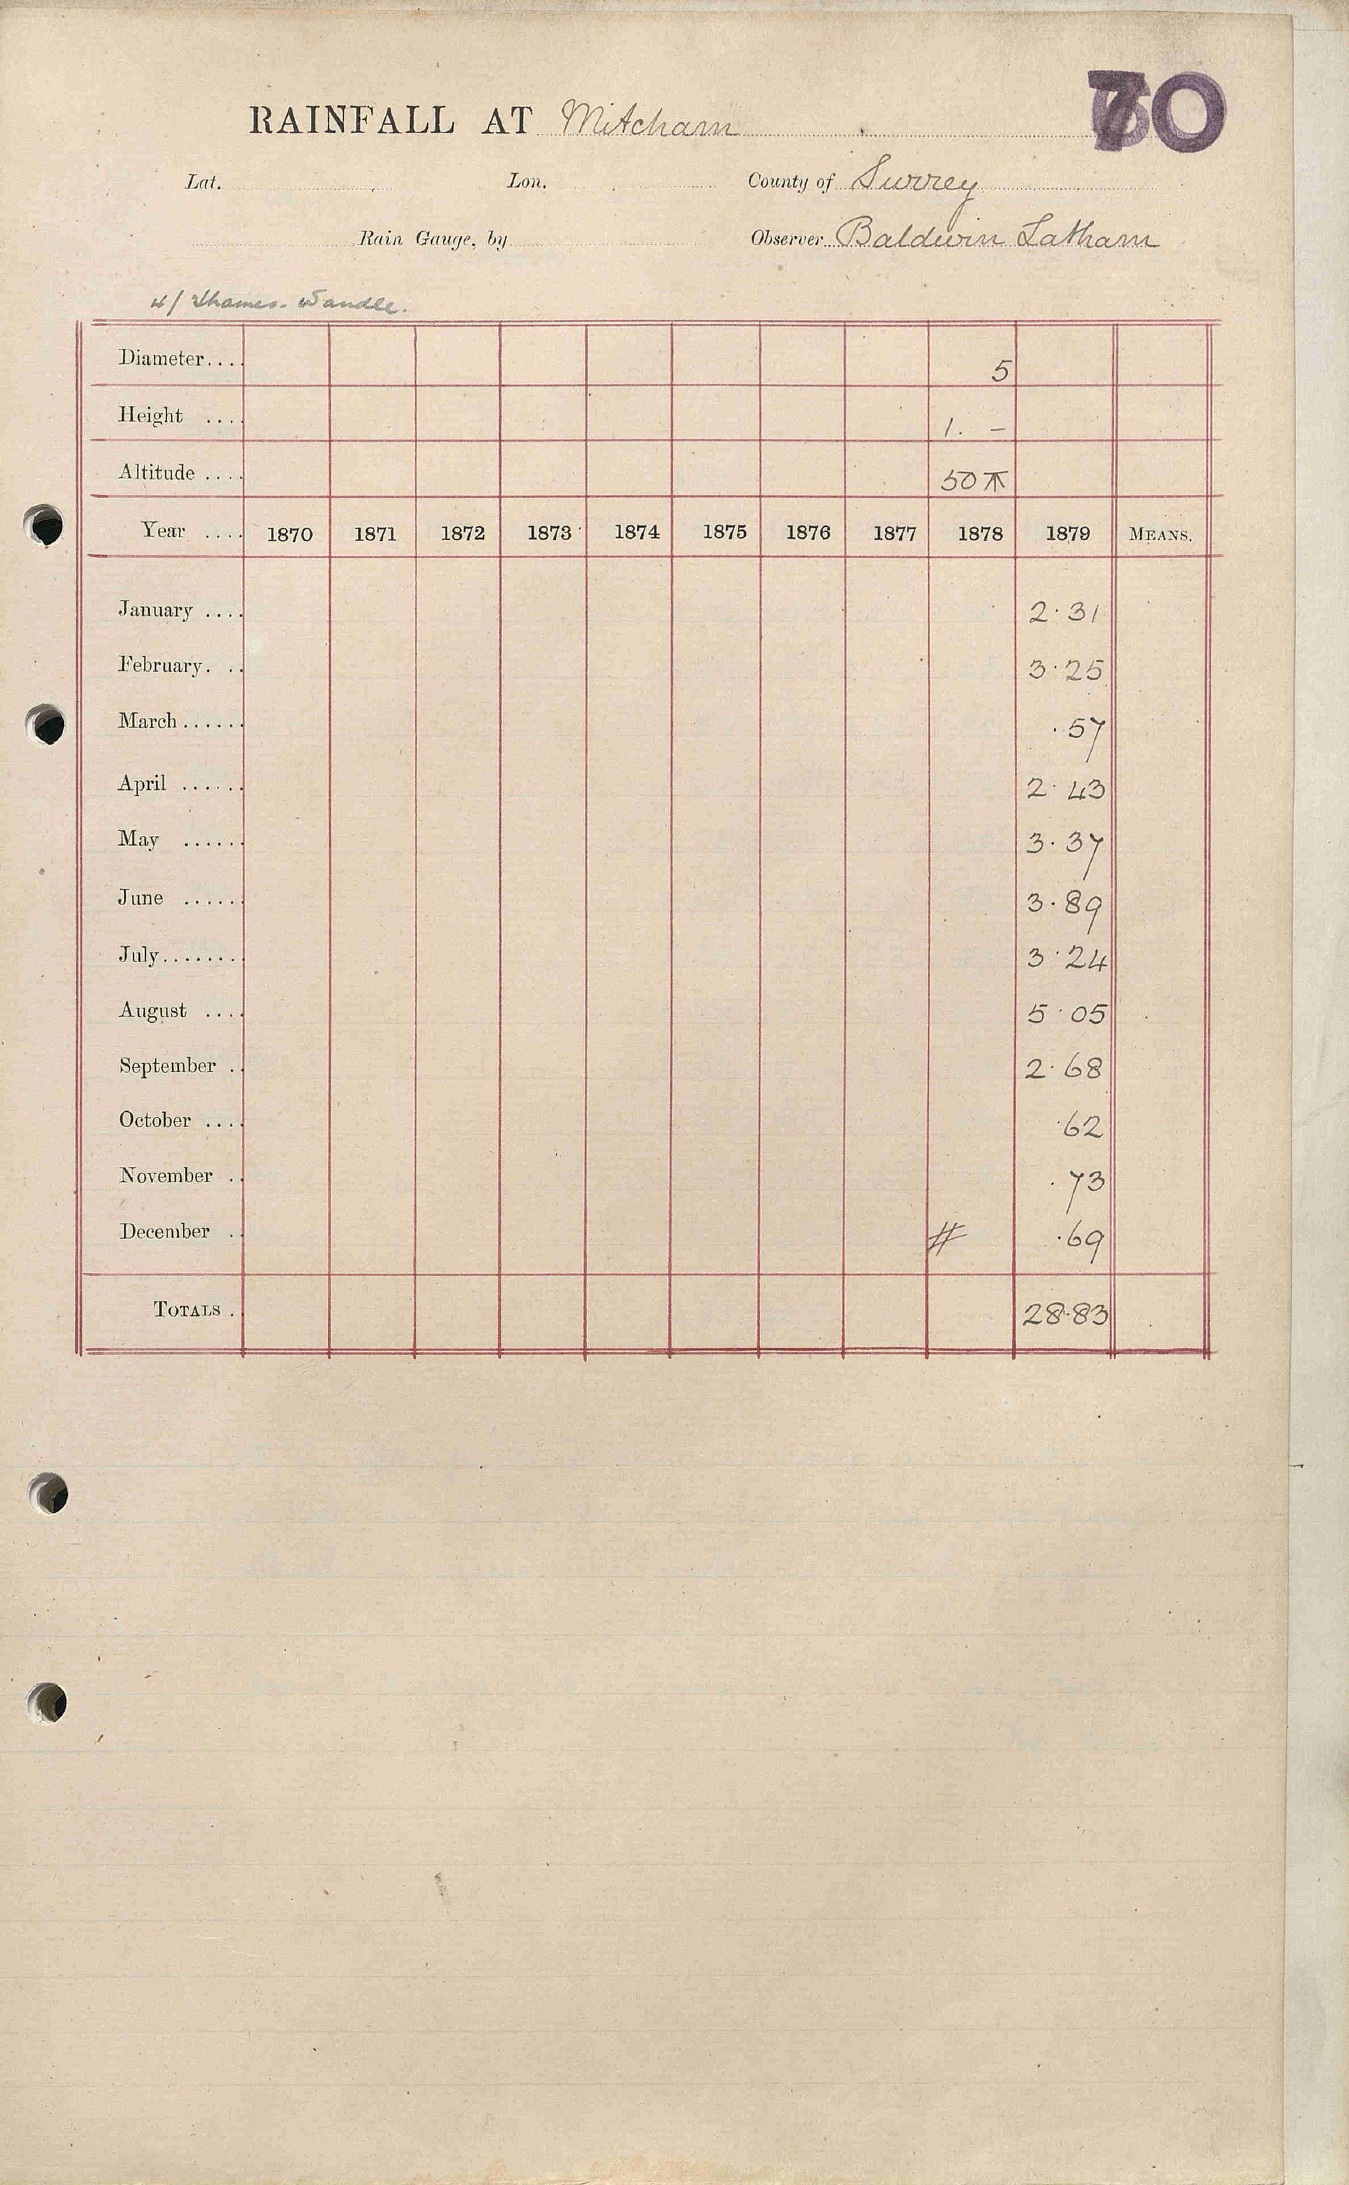 70
RAINFALL AT Mitcham
Lat. Lon. County of Surrey
Rain Gauge, by Observer Baldwin Latham
4/ Thames-Wandle.
Diameter.... 5
Height .... 1. –
Altitude .... 50
Year .... 1870 1871 1872 1873 1874 1875 1876 1877 1878 1879 MEANS.
January .... 2·31
February. .. 3·25
March ...... ·57
April ...... 2·43
May ...... 3·37
June ...... 3·89
July....... 3·24
August .... 5·05
September .. 2·68
October .... ·62
November .. ·73
December .. # ·69
TOTALS . 28·83